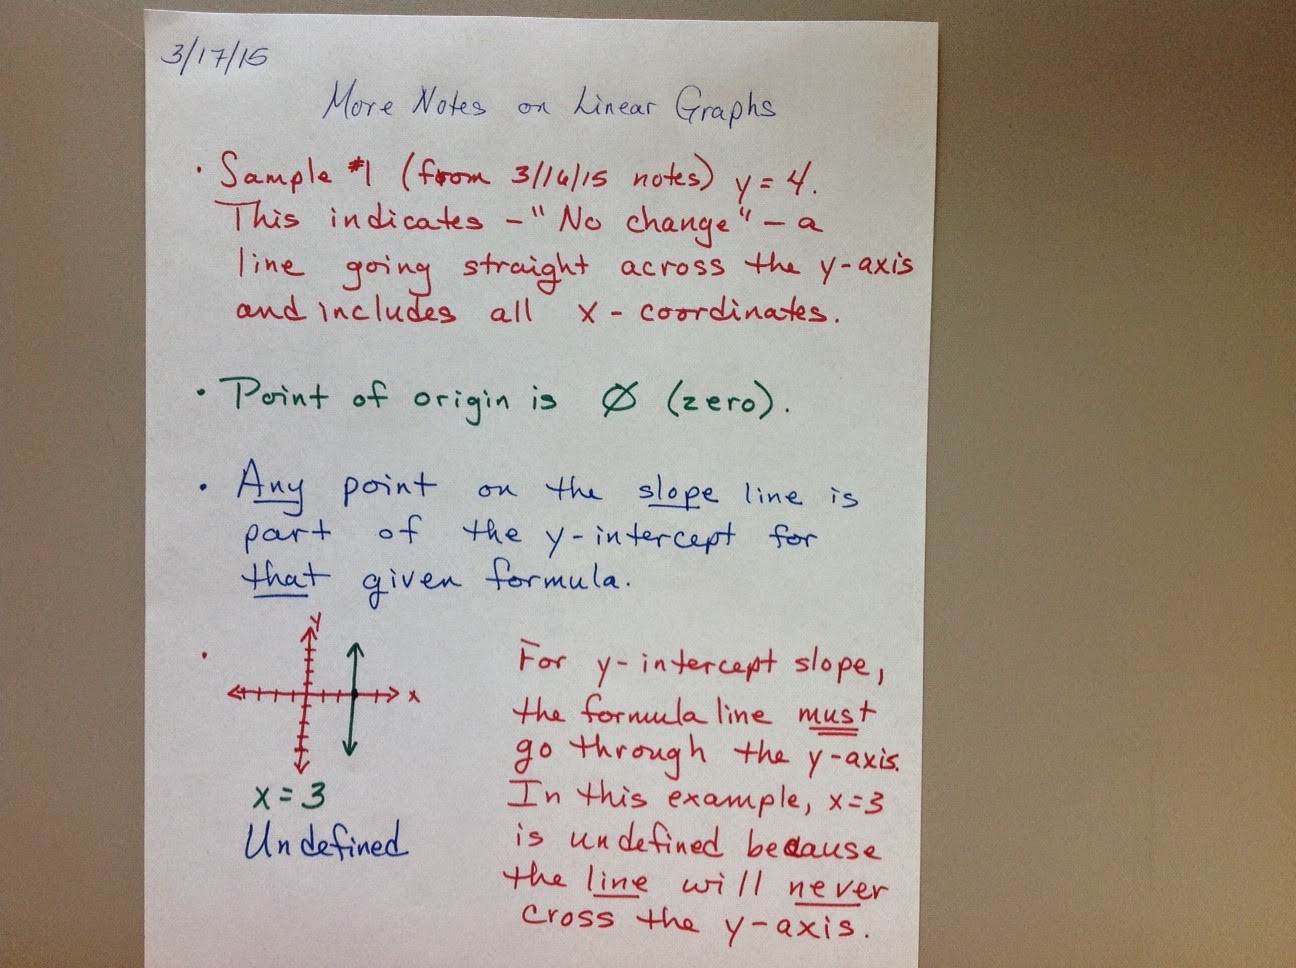 3/17/15
More Notes on Linear Graphs
• Sample #1 (from 3/16/15 notes) y = 4.
This indicates - "No change" - a
line going straight across the y-axis
and includes all x - coordinates.
• Point of origin is Ø (zero).
• Any point on the slope line is
part of the y-intercept for
that given formula.
•
y
x
x = 3
Undefined
For y-intercept slope,
the formula line must
go through the y-axis.
In this example, x=3
is undefined because
the line will never
cross the y-axis.